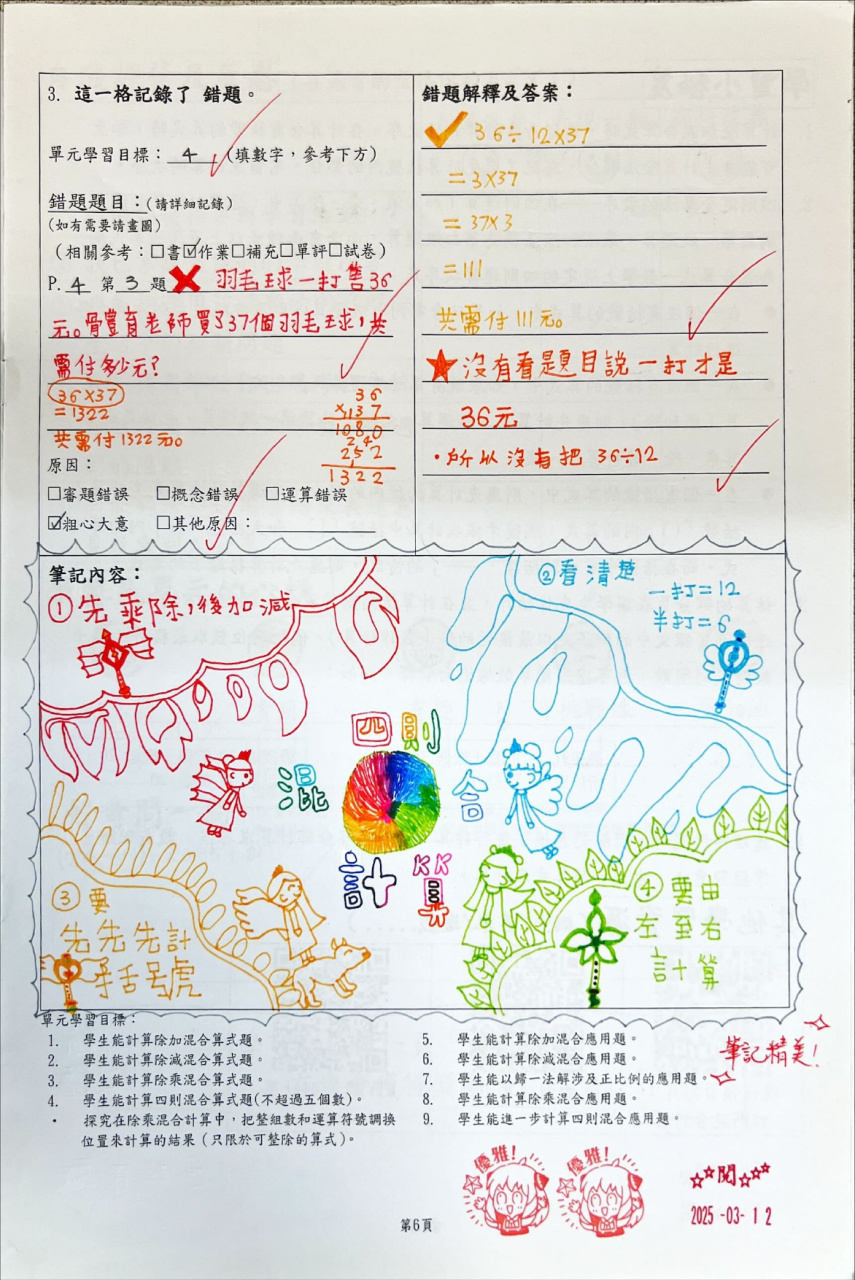 3. 這一格記錄了 錯題。
單元學習目標：4 (填數字，參考下方)
錯題題目：(請詳細記錄)
(如有需要請畫圖)
(相關參考：□書☑作業□補充□單評□試卷)
P. 4 第 3 題 ✗ 羽毛球一打售36
元。骨豈育老師買了37個羽毛球，共
需付多少元？
36×37
=1322
共需付1322元。
36
×137
1080
24
252
1322
原因：
□審題錯誤 □概念錯誤 □運算錯誤
☑粗心大意 □其他原因：
錯題解釋及答案：
✓ 36÷12×37
=3×37
=37×3
=111
共需付111元。
★沒有看題目說一打才是
36元
·所以沒有把36÷12
筆記內容：
①先乘除，後加減
②看清楚
一打=12
半打=6
四則
混合
計算
③要
先先先計
括號
④要由
左至右
計算
單元學習目標：
1. 學生能計算除加混合算式題。
2. 學生能計算除減混合算式題。
3. 學生能計算除乘混合算式題。
4. 學生能計算四則混合算式題(不超過五個數)。
· 探究在除乘混合計算中，把整組數和運算符號調換
位置來計算的結果（只限於可整除的算式）。
5. 學生能計算除加混合應用題。
6. 學生能計算除減混合應用題。
7. 學生能以歸一法解涉及正比例的應用題。
8. 學生能計算除乘混合應用題。
9. 學生能進一步計算四則混合應用題。
筆記精美！
優雅！
優雅！
☆☆閱☆☆☆
2025-03-12
第6頁